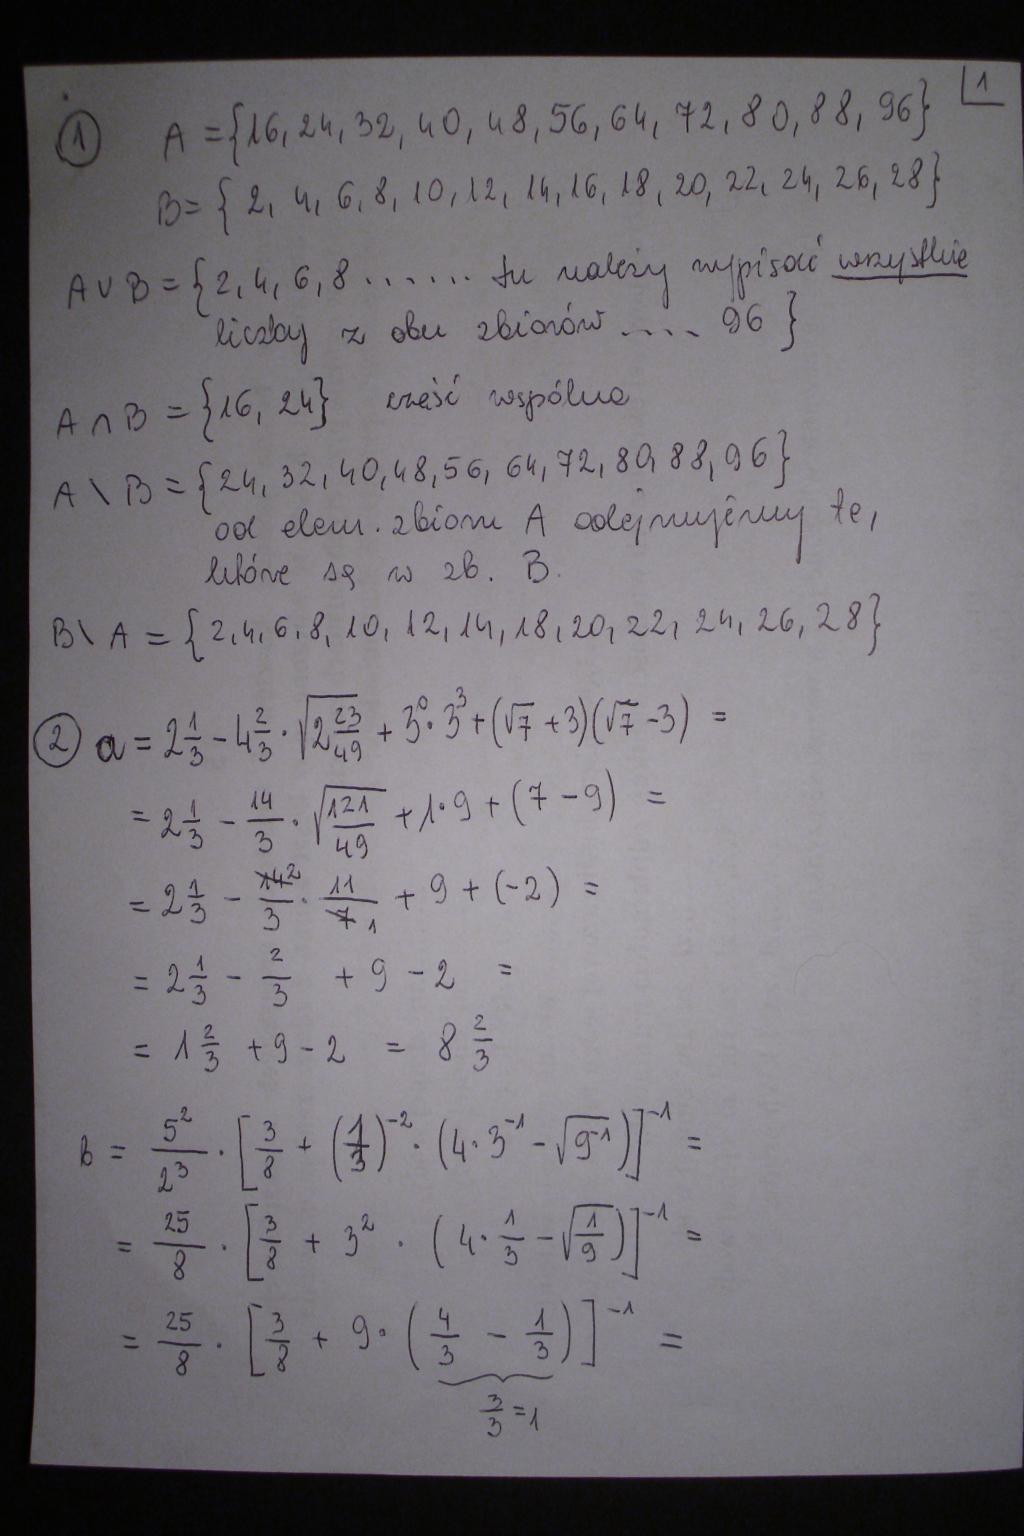 1
① A = {16, 24, 32, 40, 48, 56, 64, 72, 80, 88, 96}
B = { 2, 4, 6, 8, 10, 12, 14, 16, 18, 20, 22, 24, 26, 28}
A ∪ B = {2, 4, 6, 8 ...... tu należy wypisać wszystkie
liczby z obu zbiorów .... 96 }
A ∩ B = {16, 24} część wspólna
A \ B = {24, 32, 40, 48, 56, 64, 72, 80, 88, 96}
od elem. zbioru A odejmujemy te,
które są w zb. B.
B \ A = {2, 4, 6, 8, 10, 12, 14, 18, 20, 22, 24, 26, 28}
② a = 2 1/3 - 4 2/3 · √(2 23/49) + 3⁰ · 3³ + (√7 + 3)(√7 - 3) =
= 2 1/3 - 14/3 · √(121/49) + 1 · 9 + (7 - 9) =
= 2 1/3 - 14 2/3 · 11/7 1 + 9 + (-2) =
= 2 1/3 - 2/3 + 9 - 2 =
= 1 2/3 + 9 - 2 = 8 2/3
b = 5²/2³ · [3/8 + (1/3)⁻² · (4 · 3⁻¹ - √(9⁻¹))]⁻¹ =
= 25/8 · [3/8 + 3² · (4 · 1/3 - √(1/9))]⁻¹ =
= 25/8 · [3/8 + 9 · (4/3 - 1/3)]⁻¹ =
3/3 = 1